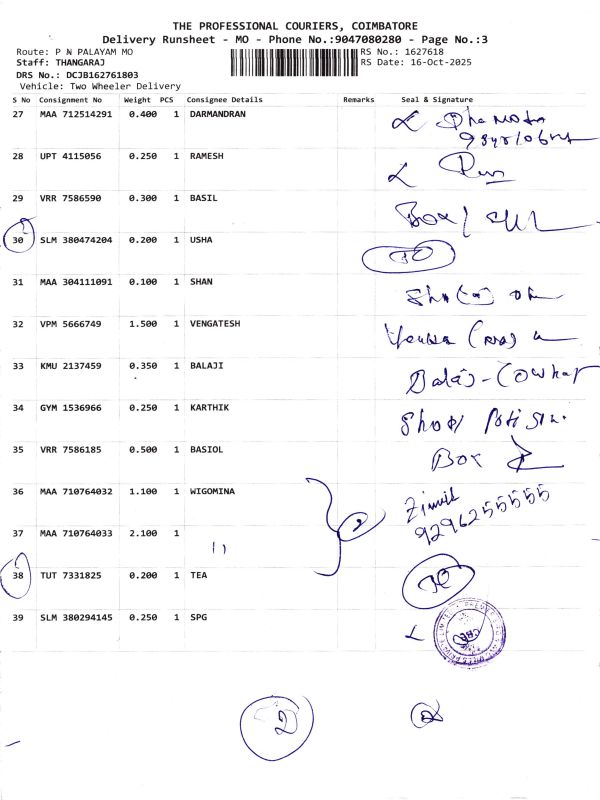 THE PROFESSIONAL COURIERS, COIMBATORE
Delivery Runsheet - MO - Phone No.:9047080280 - Page No.:3
Route: P N PALAYAM MO
RS No.: 1627618
Staff: THANGARAJ
RS Date: 16-Oct-2025
DRS No.: DCJB162761803
Vehicle: Two Wheeler Delivery
S No Consignment No Weight PCS Consignee Details Remarks Seal & Signature
27 MAA 712514291 0.400 1 DARMANDRAN
28 UPT 4115056 0.250 1 RAMESH
29 VRR 7586590 0.300 1 BASIL Box/
30 SLM 380474204 0.200 1 USHA
31 MAA 304111091 0.100 1 SHAN
32 VPM 5666749 1.500 1 VENGATESH
33 KMU 2137459 0.350 1 BALAJI
34 GYM 1536966 0.250 1 KARTHIK
35 VRR 7586185 0.500 1 BASIOL Box
36 MAA 710764032 1.100 1 WIGOMINA 2
9296255555
37 MAA 710764033 2.100 1 11
38 TUT 7331825 0.200 1 TEA
39 SLM 380294145 0.250 1 SPG
2 2